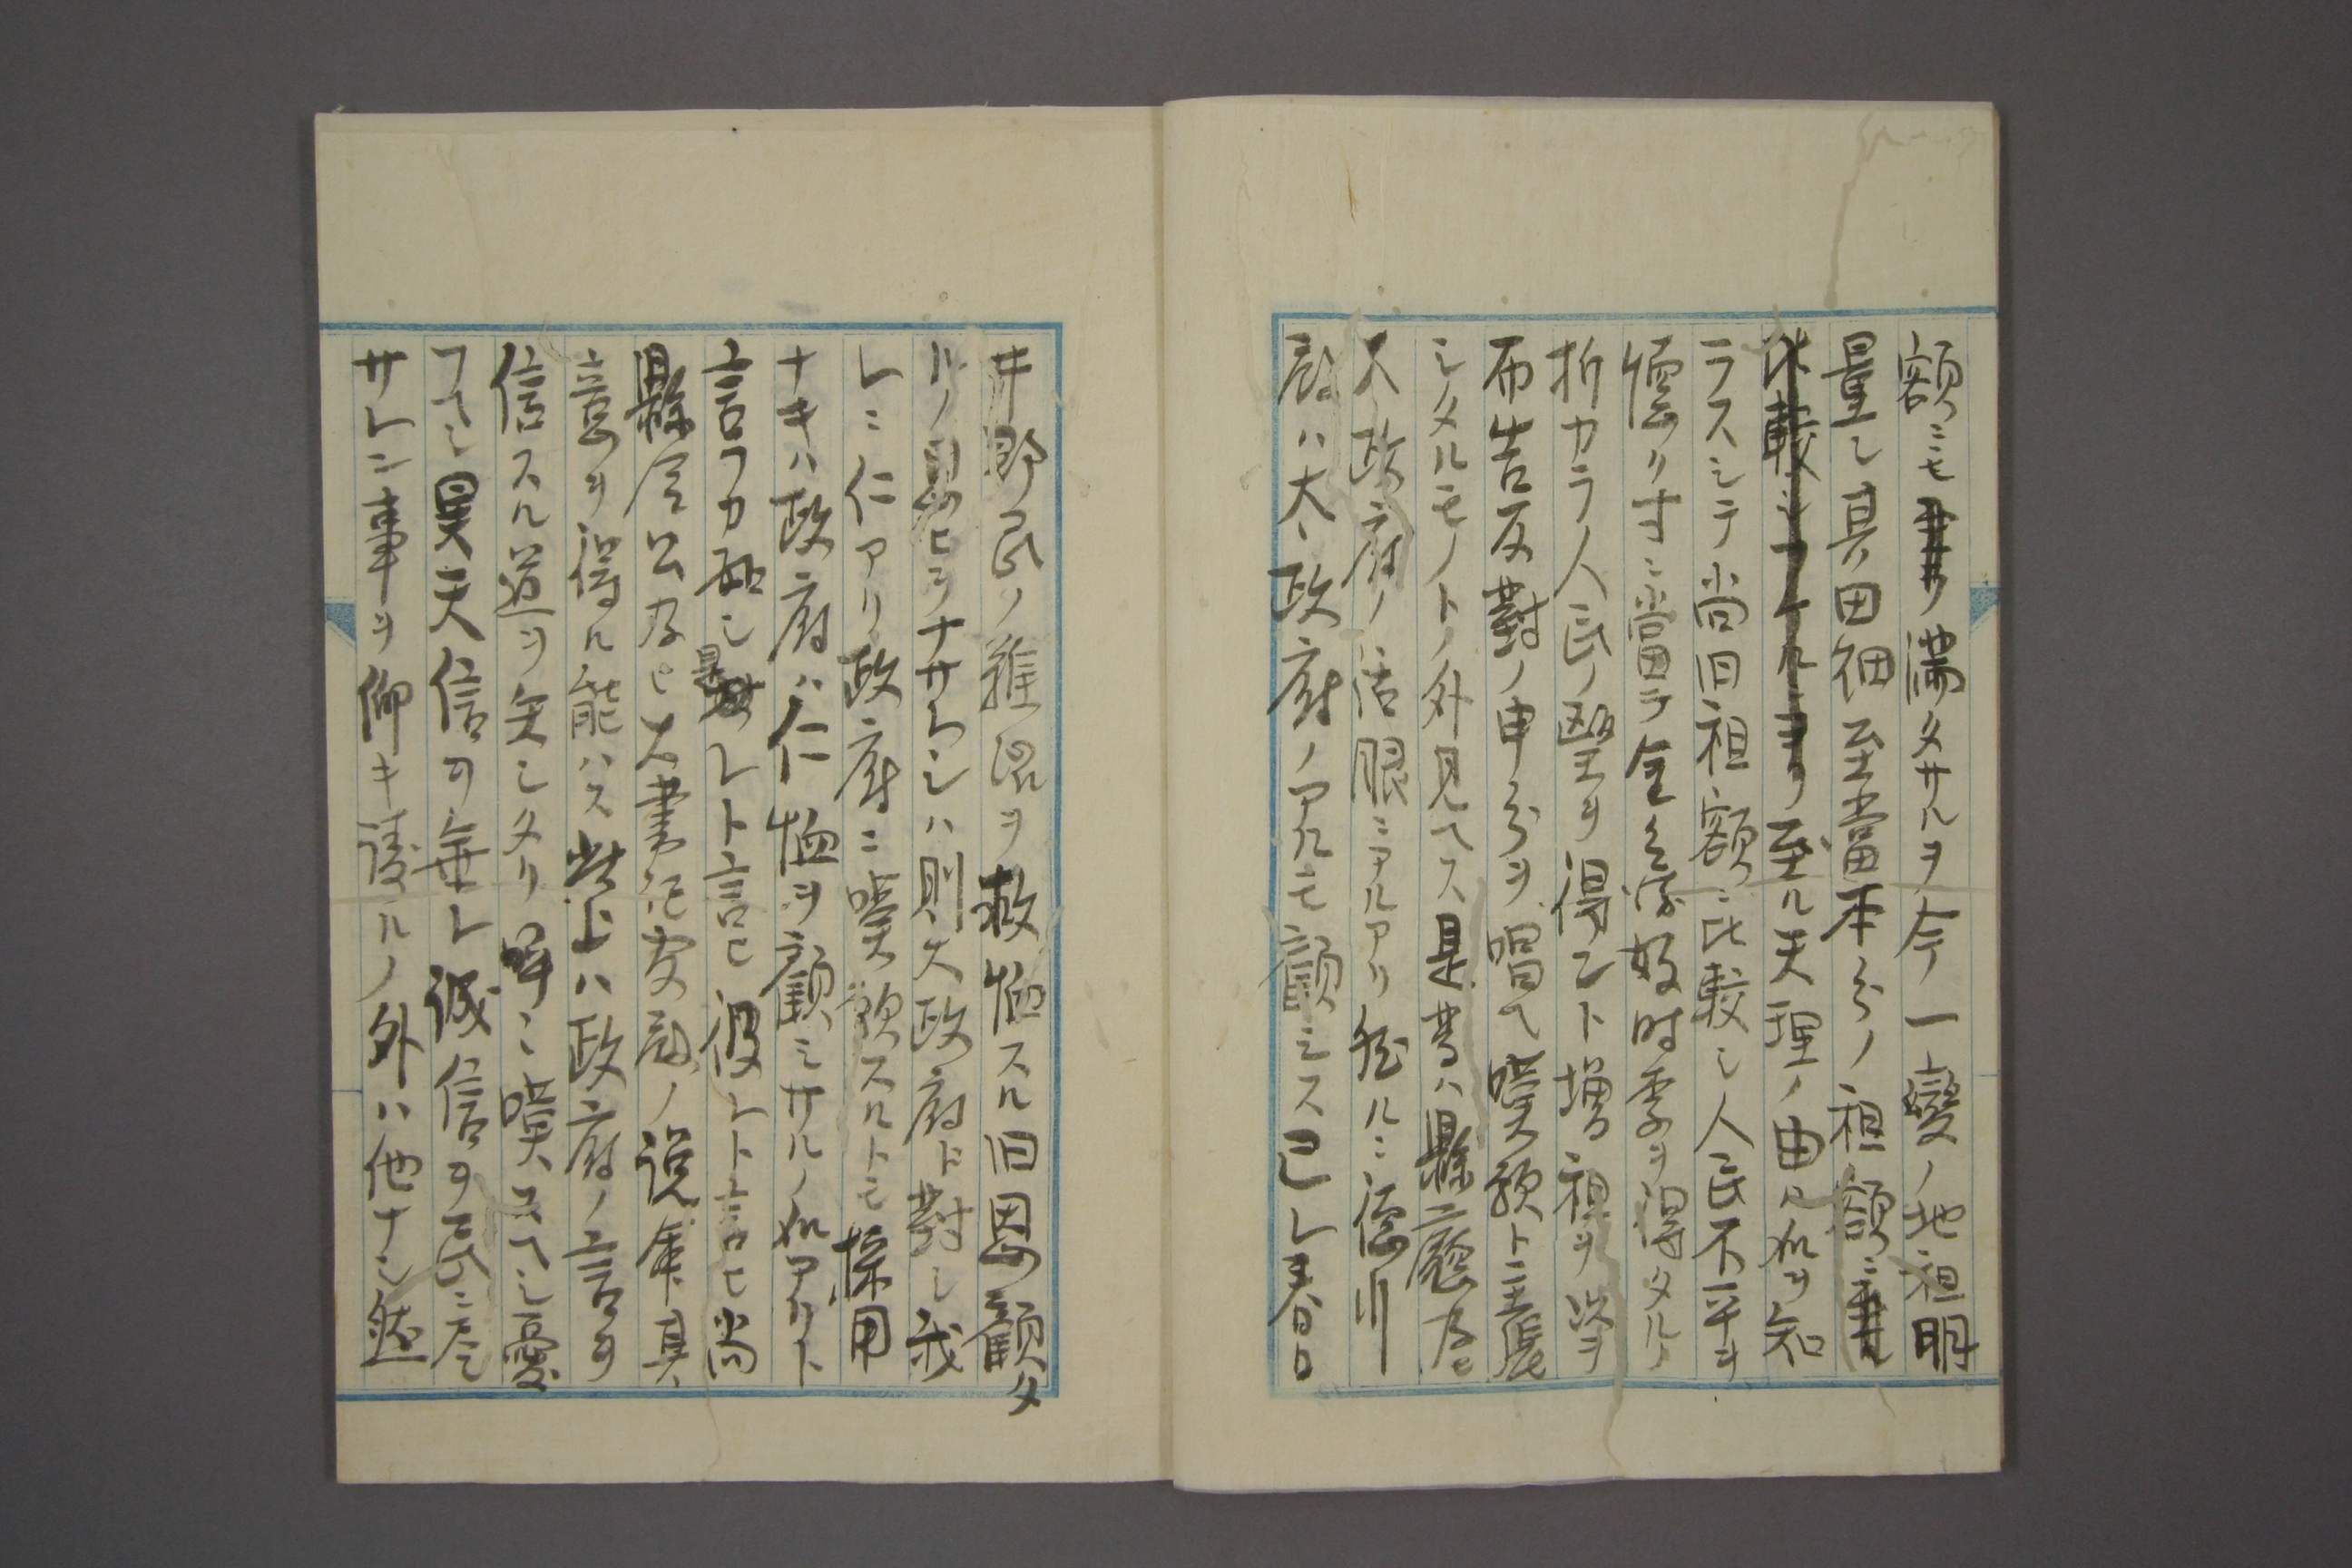 額ニモ満タサルヲ今一變ノ地租明
量シ其田細至當本分ノ租額ニ
至ル天理ノ由ル処ヲ知
ラスシテ尚旧租額ニ比較シ人民不平ヲ
懐クナニ當ラ全ク好時季ヲ得タルノ
折カラ人民ノ望ヲ得ント増租ヲ以ヲ
布告反對ノ申分ヲ唱ヘ嘆願ト主張
シタルモノトノ外見ヘス是昔ハ縣廳及ヒ
大政府ノ活眼ニアルアリ然ルニ徳川
殿ハ大政府ノアルモ顧ミス已レ春日
井郡民ノ難渋ヲ救恤スル旧恩顧タ
ルノ思ヒヲナサラシハ則大政府ト對シ我
レニ仁アリ政府ニ嘆願スルトモ採用
ナキハ政府ハ仁恤ヲ顧ミサルノ処アリト
言フカ如シ是レト言ヒ彼レト言ヒ尚
縣令公及ヒ大書記官殿ノ説集具
意ヲ得ル能ハス此上ハ政府ノ言ヲ
信スル道ヲ失シタリ呼ニ嘆スヘシ憂
フヘシ昊天信ヲ無レ誠信ヲ民ニ尽
サレン事ヲ仰キ譲ルノ外ハ他ナシ然